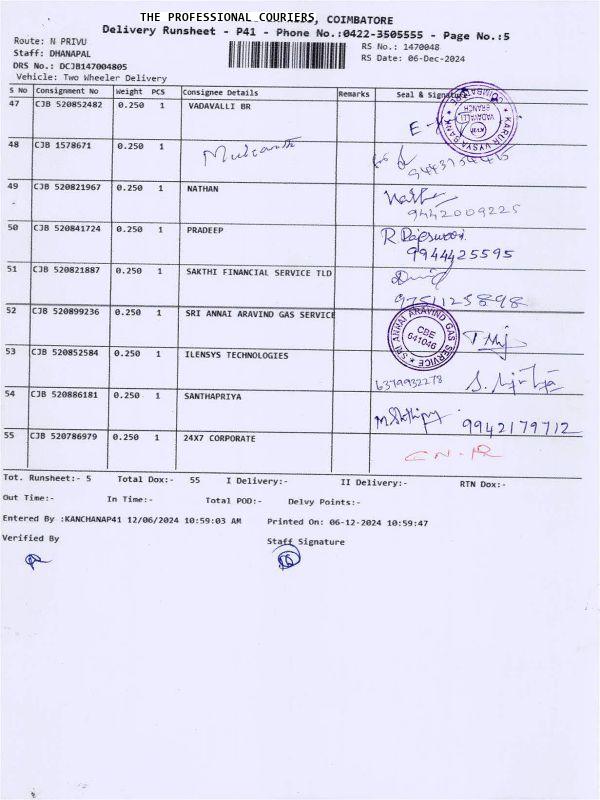 THE PROFESSIONAL COURIERS, COIMBATORE
Delivery Runsheet - P41 - Phone No.:0422-3505555 - Page No.:5
Route: N PRIVU
RS No.: 1470048
Staff: DHANAPAL
RS Date: 06-Dec-2024
DRS No.: DCJB147004805
Vehicle: Two Wheeler Delivery
S No Consignment No Weight PCS Consignee Details Remarks Seal & Signature
47 CJB 520852482 0.250 1 VADAVALLI BR
KARUR VYSYA BANK VADAVALLI BRANCH COIMBATORE
48 CJB 1578671 0.250 1
49 CJB 520821967 0.250 1 NATHAN
9442009225
50 CJB 520841724 0.250 1 PRADEEP
R Rajeswari
9944425595
51 CJB 520821887 0.250 1 SAKTHI FINANCIAL SERVICE TLD
9751125898
52 CJB 520899236 0.250 1 SRI ANNAI ARAVIND GAS SERVICE
SRI ANNAI ARAVIND GAS SERVICE CBE 641046
53 CJB 520852584 0.250 1 ILENSYS TECHNOLOGIES
6379932278
54 CJB 520886181 0.250 1 SANTHAPRIYA
9942179712
55 CJB 520786979 0.250 1 24X7 CORPORATE
Tot. Runsheet:- 5 Total Dox:- 55 I Delivery:- II Delivery:- RTN Dox:-
Out Time:- In Time:- Total POD:- Delvy Points:-
Entered By :KANCHANAP41 12/06/2024 10:59:03 AM Printed On: 06-12-2024 10:59:47
Verified By
Staff Signature